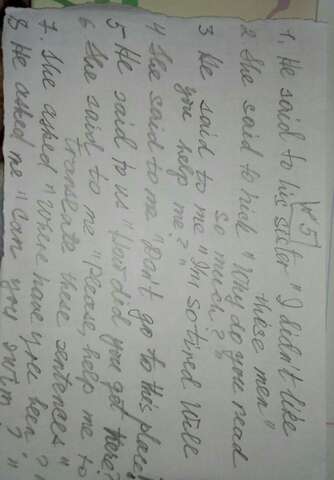 №5
1. He said to his sister "I didn't like
these men"
2 She said to Nick "Why do you read
so much?"
3 He said to me "I'm so tired Will
you help me?"
4 She said to me "Don't go to this place!
5 He said to us "How did you get here?
6 She said to me "Please, help me to
translate these sentences"
7. She asked "Where have you been"?
8 He asked me "Can you swim?"